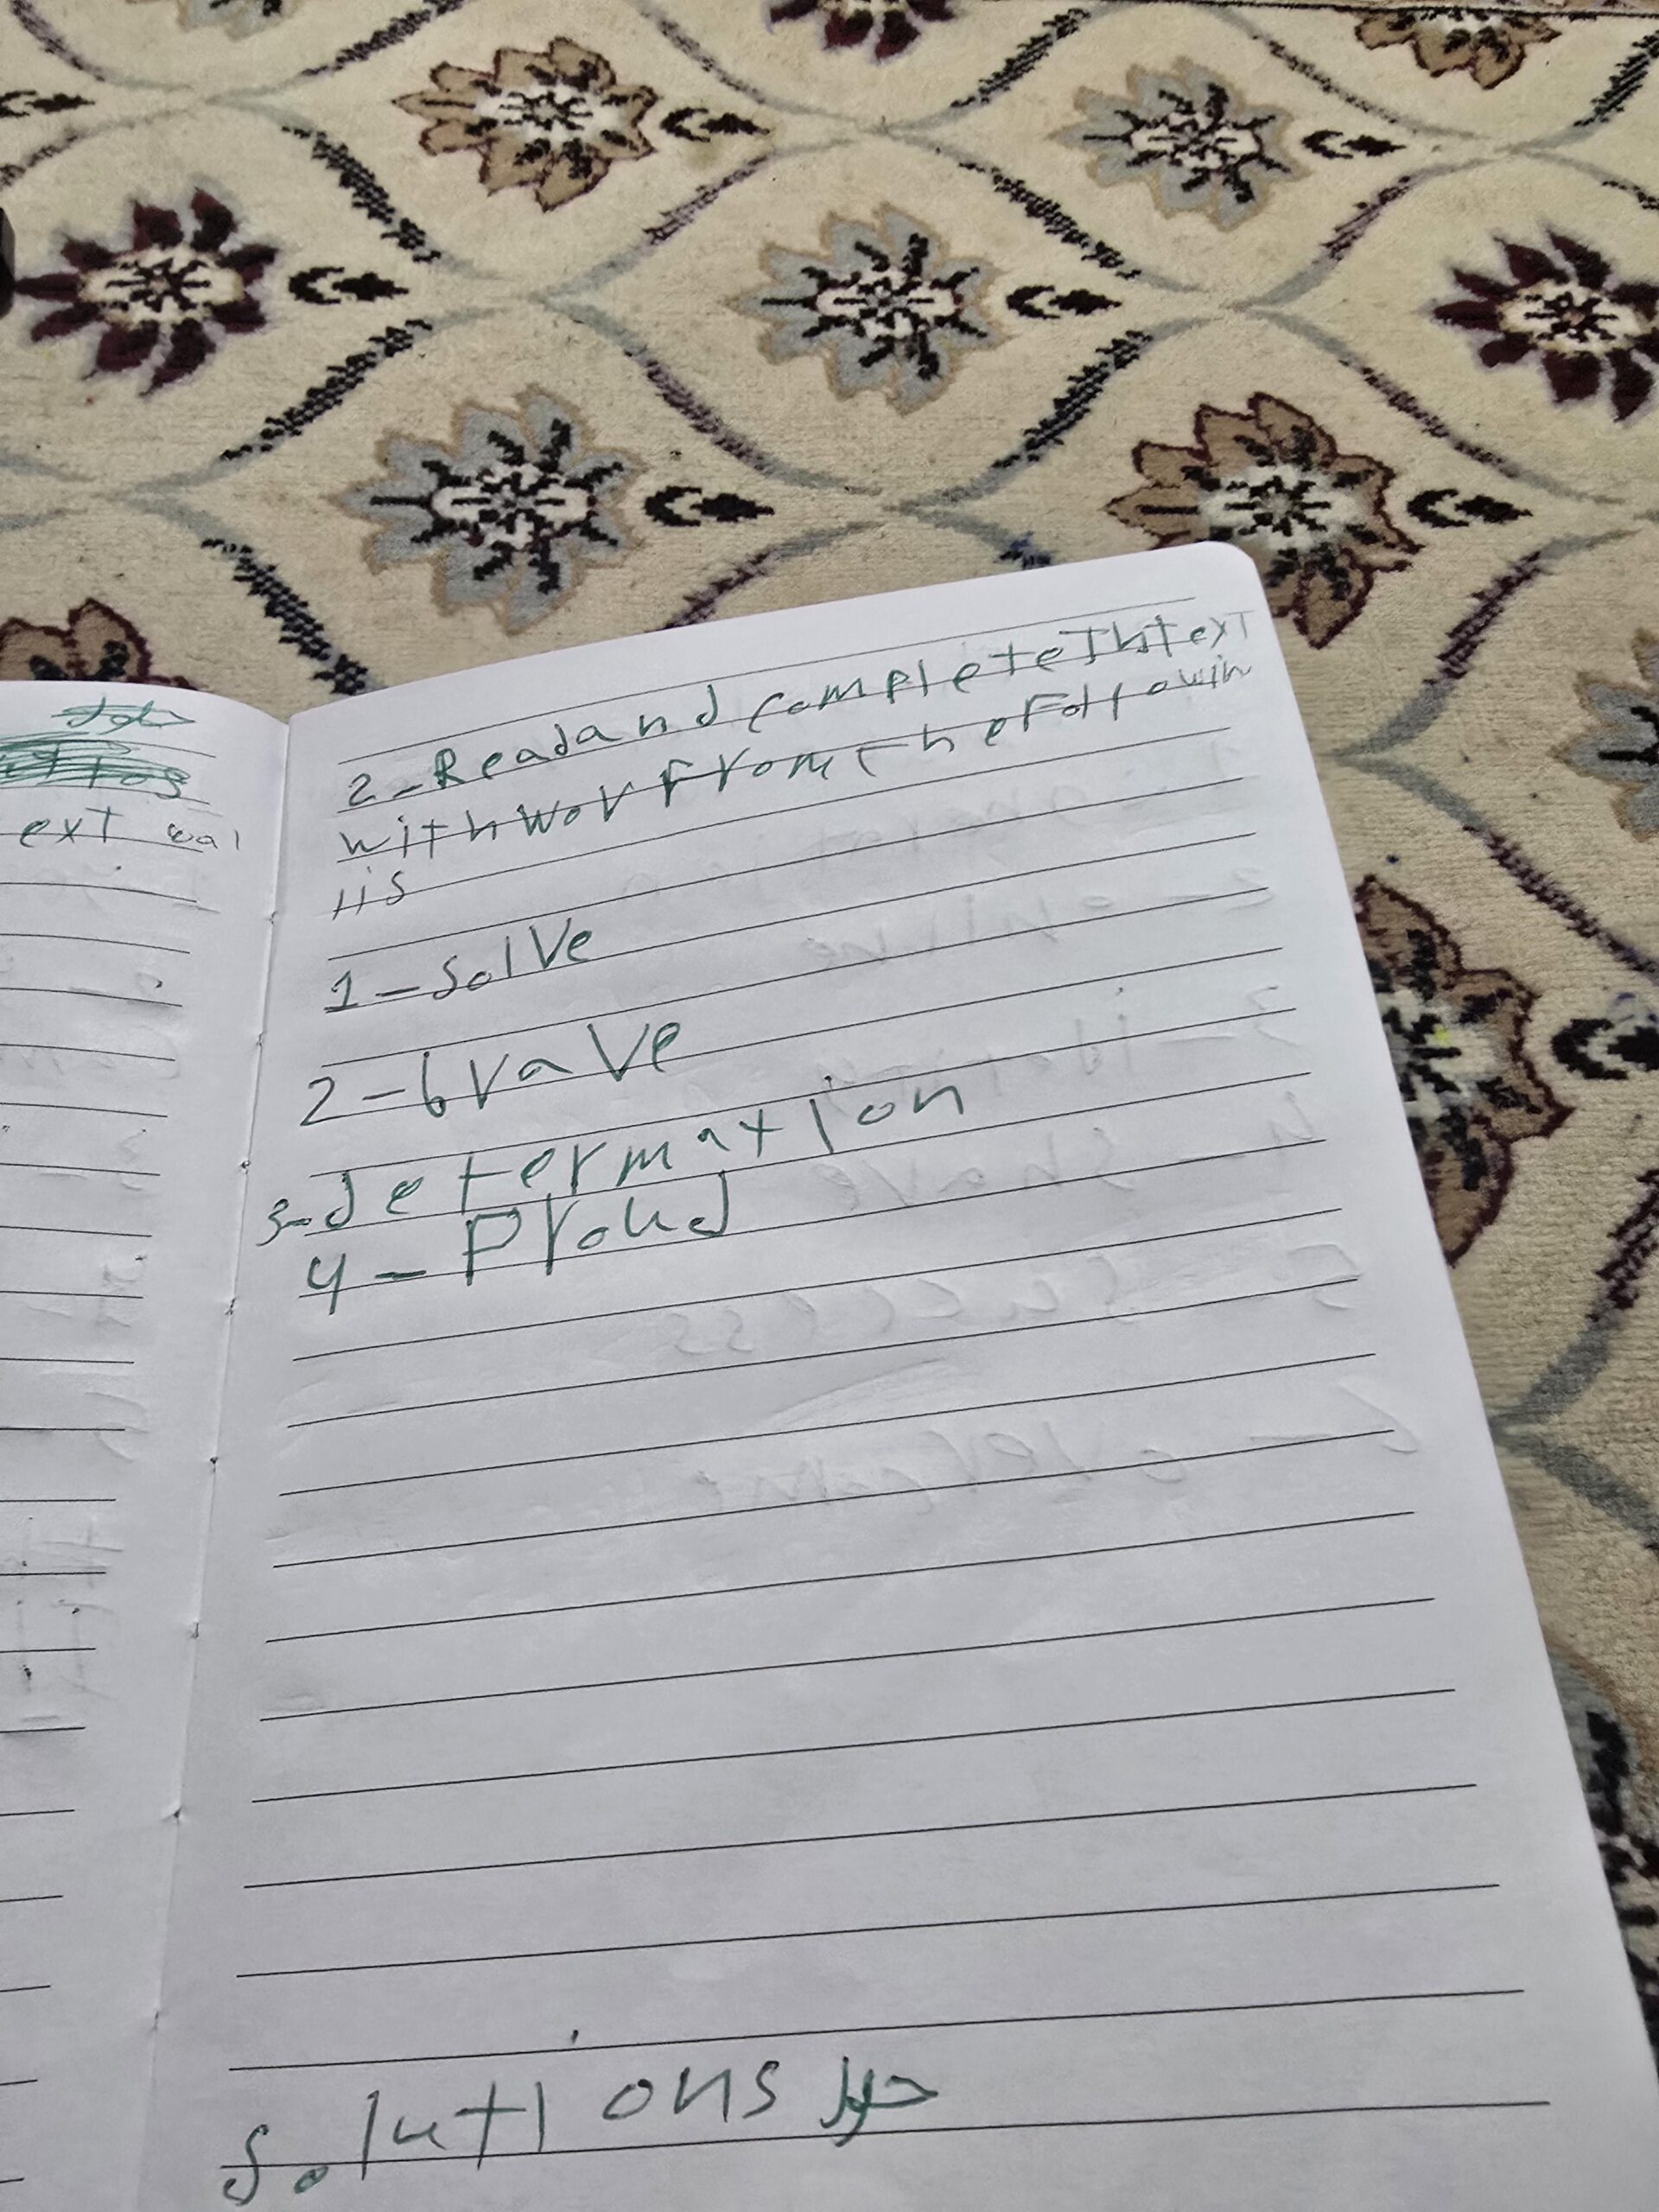 ext wal
2-Read and complete Th text
with wor From the Followin
lis
1-solve
2-brave
3-determaxion
4-Proud
solutions حل